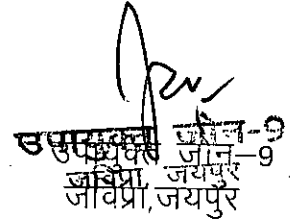 उपायुक्त जोन-9
उपायुक्त जोन-9
जविप्रा, जयपुर
जविप्रा, जयपुर